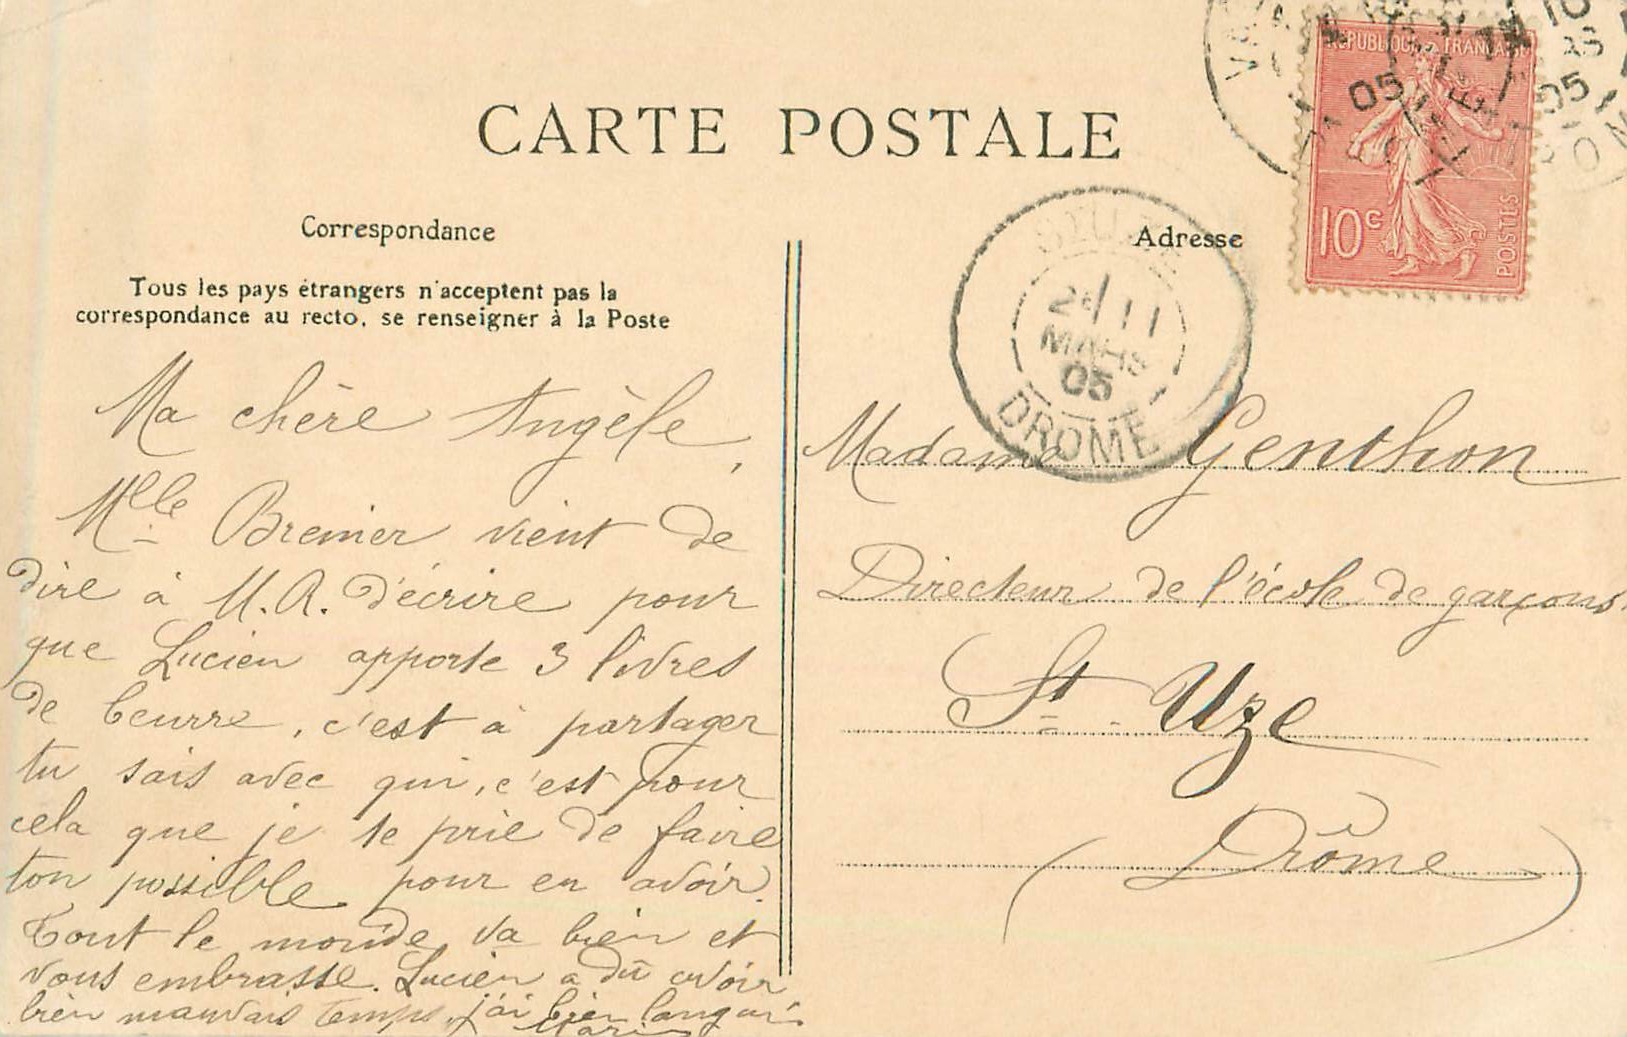 CARTE POSTALE
Correspondance
Tous les pays étrangers n'acceptent pas la
correspondance au recto, se renseigner à la Poste
Ma chère Angèle,
Mlle Brenier vient de
dire à M.A. d'écrire pour
que Lucien apporte 3 livres
de beurre, c'est à partager
tu sais avec qui, c'est pour
cela que je te prie de faire
ton possible pour en avoir.
Tout le monde va bien et
vous embrasse. Lucien a dû avoir
bien mauvais temps, j'ai bien langui
Marie
Adresse
REPUBLIQUE FRANÇAISE
10c
POSTES
05
10
05
11
MARS
05
DROME
Madame Genthon
Directeur de l'école de garçons
St Uze
(Drôme)